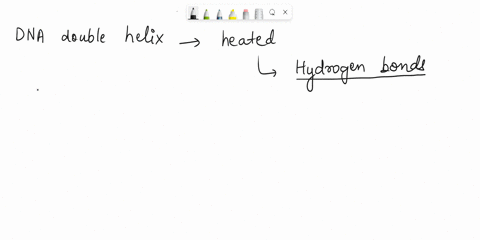 DNA double helix → heated
↳ Hydrogen bonds